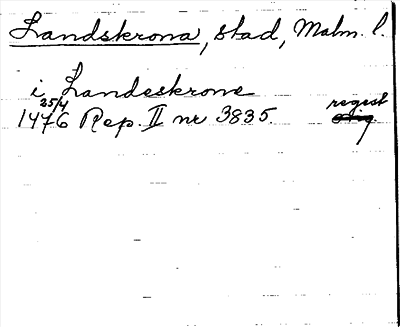 Landskrona, stad, Malm. l.
i Landeskrone
25/4 regest
1476 Rep. II nr 3835. orig.